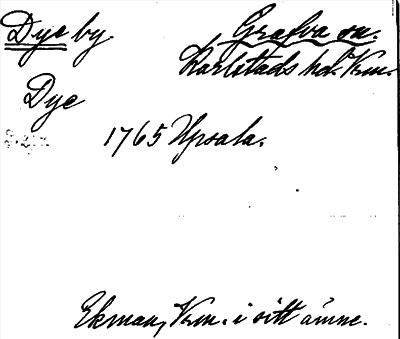 Dye by
Grafva sn.
Karlstads hd. Vrm.
Dye
1765 Upsala.
Ekman, Vrm. i sitt ämne.